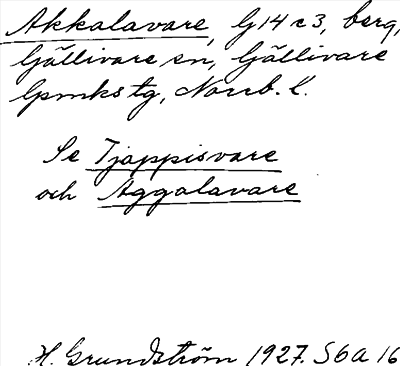 Akkalavare, G14 c3, berg,
Gällivare sn, Gällivare
lpmks tg, Norrb. l.
Se Tjappisvare
och Aggalavare
H. Grundström 1927. S6a 16